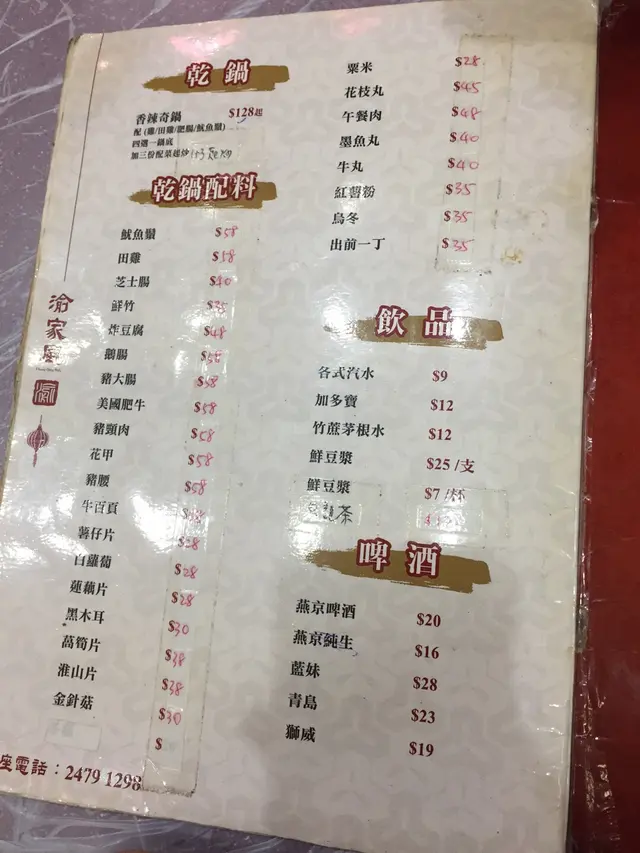 乾鍋
香辣奇鍋 $128起
配 (雞/田雞/肥腸/魷魚鬚)
四選一鍋底
加三份配菜起炒
乾鍋配料
魷魚鬚 $58
田雞 $58
芝士腸 $40
鮮竹 $35
炸豆腐 $48
鵝腸 $58
豬大腸 $58
美國肥牛 $58
豬頸肉 $58
花甲 $58
豬腰 $58
牛百頁
薯仔片 $28
白蘿蔔 $28
蓮藕片 $28
黑木耳 $30
萵筍片 $38
淮山片 $38
金針菇 $30
$
座電話：2479 1298
渝家
粟米 $28
花枝丸 $45
午餐肉 $48
墨魚丸 $40
牛丸 $40
紅薯粉 $35
烏冬 $35
出前一丁 $35
飲品
各式汽水 $9
加多寶 $12
竹蔗茅根水 $12
鮮豆漿 $25 /支
鮮豆漿 $7 /杯
茶
啤酒
燕京啤酒 $20
燕京純生 $16
藍妹 $28
青島 $23
獅威 $19